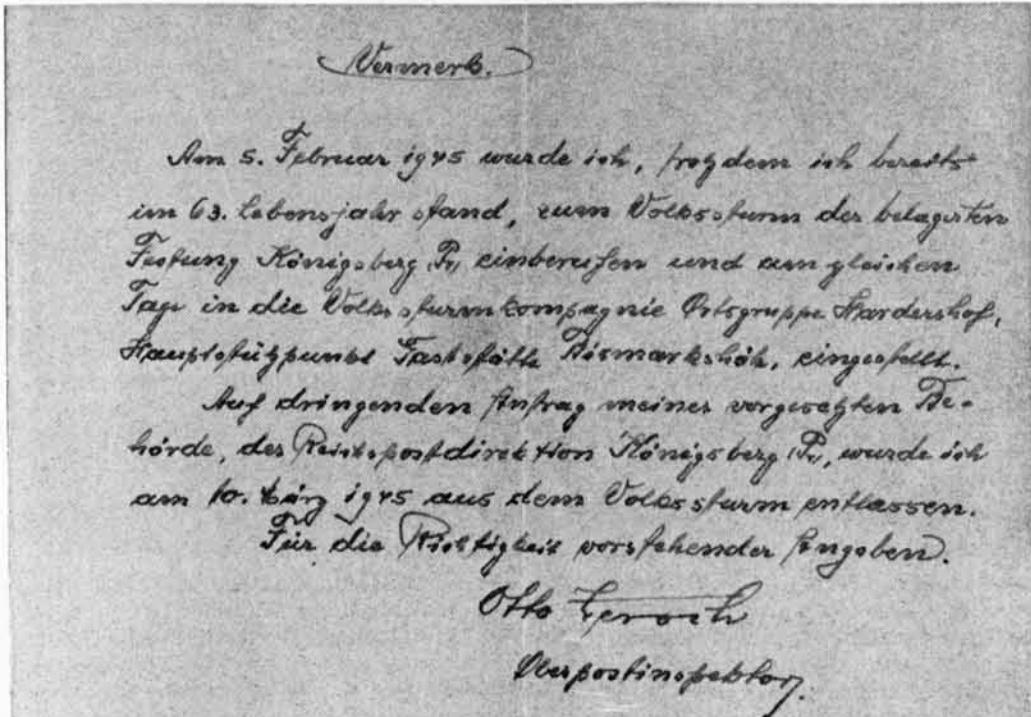 Vermerk.
Am 5. Februar 1945 wurde ich, trotzdem ich bereits
im 63. Lebensjahr stand, zum Volkssturm der belagerten
Festung Königsberg (Pr) einberufen und am gleichen
Tage in die Volkssturmkompagnie Ortsgruppe Hardershof,
Hauptstützpunkt Gaststätte Bismarkshöh, eingestellt.
Auf dringenden Antrag meiner vorgesetzten Be-
hörde, der Reichspostdirektion Königsberg (Pr), wurde ich
am 10. März 1945 aus dem Volkssturm entlassen.
Für die Richtigkeit vorstehender Angaben.
Otto
Oberpostinspektor